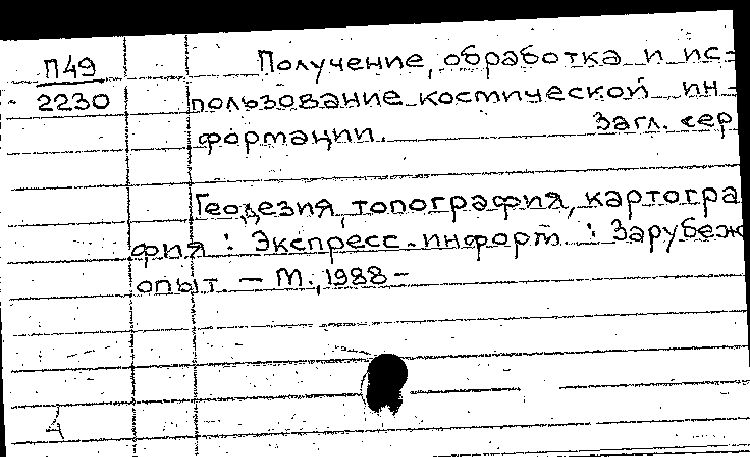 П49
2230
Получение, обработка и ис-
пользование костической ин-
формации. Загл. сер
Геодезия, топография, картогра
фия : Экспресс-информ. : Зарубеж
опыт. — М., 1988 –